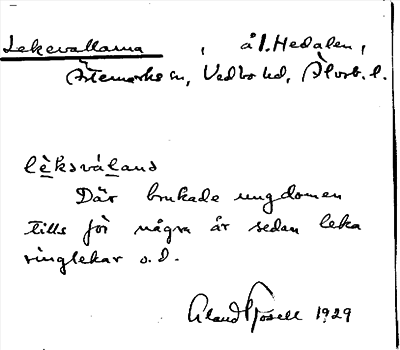 Lekevallarna, å l. Hedalen,
Ärtemarks sn, Vedbo hd, Älvsb. l.
lèksválans
Där brukade ungdomen
tills för några år sedan leka
ringlekar o. d.
1929